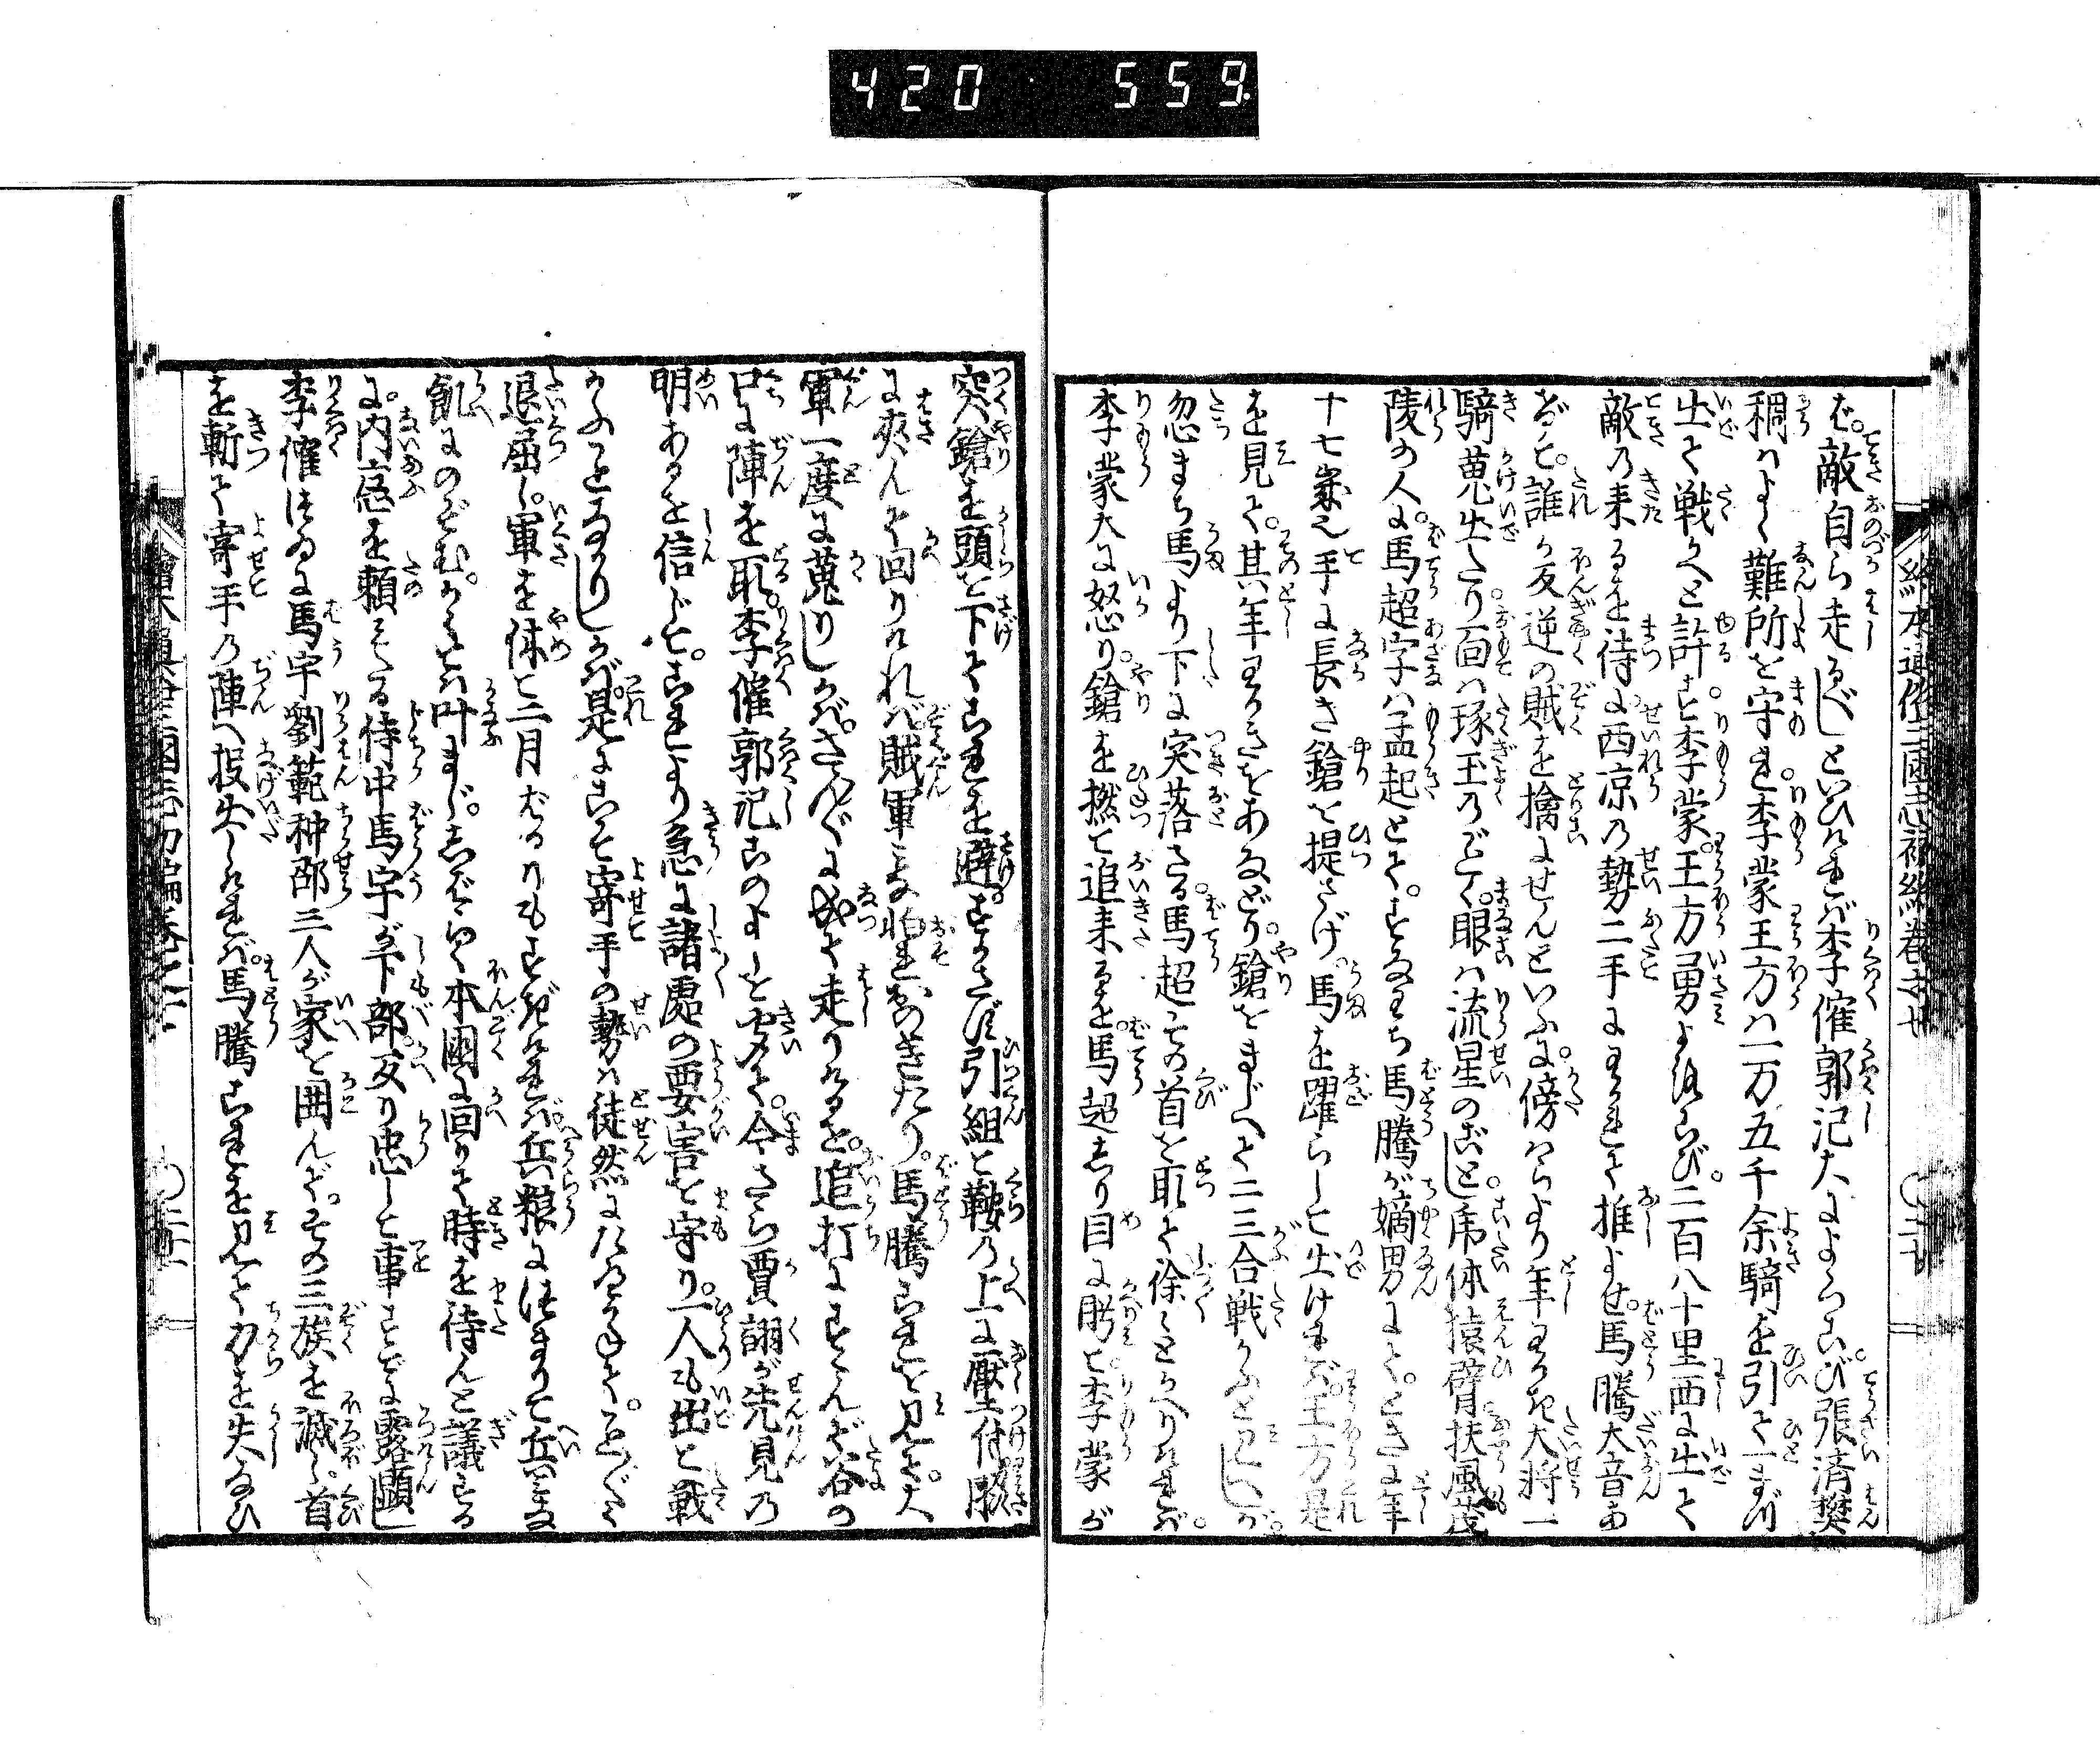 420 559
ば。敵自ら走るべしといひければ李傕郭汜大によろこび。張済樊
稠はよく難所を守れ。李蒙王方は一万五千余騎を引て一まづ
出て戦へと許す。李蒙。王方勇よろこび。二百八十里西に出て
敵の来るを待に。西涼の勢二手にわかれて推よせ。馬騰大音あ
げて。誰か反逆の賊を擒にせんといふに。傍はらより年わかき大将一
騎蒐出たり。面は琢玉のごとく。眼は流星のごとし。虎体猿臂扶風茂
陵の人に。馬超字は孟起とて。すなはち馬騰が嫡男にて。ときに年
十七歳也手に長き鎗を提さげ。馬を躍らして出ければ。王方是
を見て。其年わかきをあなどり。鎗をまじへて二三合戦かふと見へしが。
忽まち馬より下に突落さる。馬超その首を取て徐〳〵とかへりければ。
李蒙大に怒り。鎗を撚て追来るを。馬超しり目に眄て李蒙が
突鎗を頭を下てこれを避。すかさず引組て鞍の上に壓付。脇
に夾んで回りければ。賊軍みな怕れおのきたり。馬騰これを見て。大
軍一度に蒐りしかば。さん〴〵に成て走りけるを。追打にすゝんで谷の
口に陣を取。李傕郭汜このよしを聞て。今さら賈詡が先見の
明あるを信じて。これより急に諸處の要害を守り。一人も出て戦
かふことなかりしかば。是にこそ寄手の勢は徒然にたへかねて。こと〴〵く
退屈し。軍を休て二月ばかりもすぎければ。兵粮につまりて兵みな
飢にのぞむ。かくては叶まじ。しばらく本國に回りて時を待んと議する
に。内応を頼みたる侍中馬宇が下部。反り忠して事すでに露顕し
李傕つゐに馬宇劉範种邵三人が家を囲んで。その三族を滅し。首
を斬て寄手の陣へ投出しければ。馬騰これを見て力を失なひ